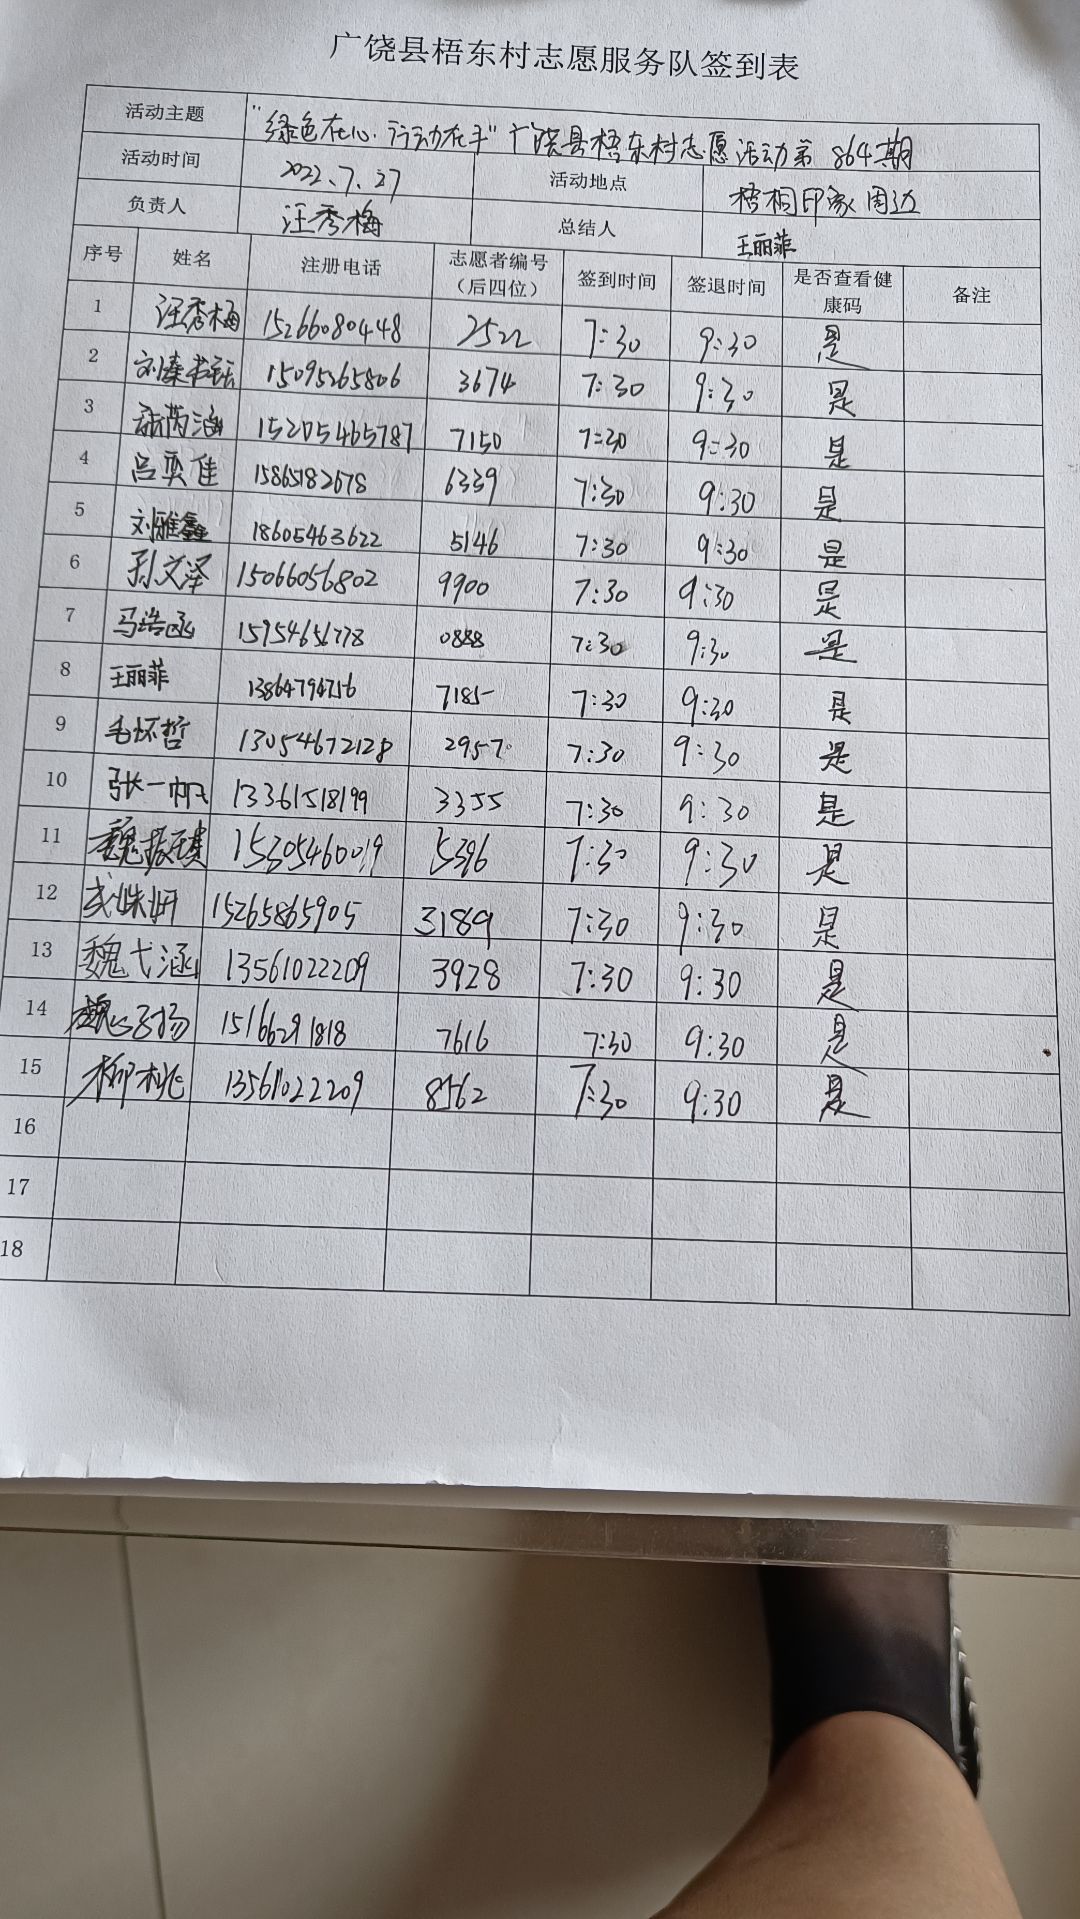 广饶县梧东村志愿服务队签到表
活动主题 "绿色在心·行动在手"广饶县梧东村志愿活动第864期
活动时间 2022.7.27 活动地点 梧桐印象周边
负责人 汪秀梅 总结人 王丽菲
序号 姓名 注册电话 志愿者编号（后四位） 签到时间 签退时间 是否查看健康码 备注
1 汪秀梅 15266080448 2522 7:30 9:30 是
2 刘秦书 15095265806 3674 7:30 9:30 是
3 芮涵 15205465787 7150 7:30 9:30 是
4 吕奕佳 15865182678 6339 7:30 9:30 是
5 刘雅鑫 18605463622 5146 7:30 9:30 是
6 孙文泽 15066056802 9900 7:30 9:30 是
7 马浩函 15954656778 0888 7:30 9:30 是
8 王丽菲 13864794756 7185 7:30 9:30 是
9 毛怀哲 13054672128 2957 7:30 9:30 是
10 张一帆 13361518199 3355 7:30 9:30 是
11 魏振琪 15305460019 5396 7:30 9:30 是
12 姝妍 15265865905 3189 7:30 9:30 是
13 魏弋涵 13561022209 3928 7:30 9:30 是
14 魏子扬 15166291818 7616 7:30 9:30 是
15 柳桃 13561022209 8562 7:30 9:30 是
16
17
18